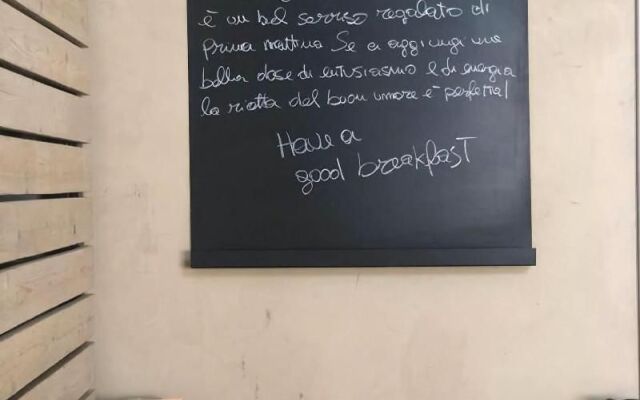 è un bel sorriso regalato di
prima mattina Se ci aggiungi una
bella dose di entusiasmo e di energia
la ricetta del buon umore è perfetta!
Have a
good breakfast